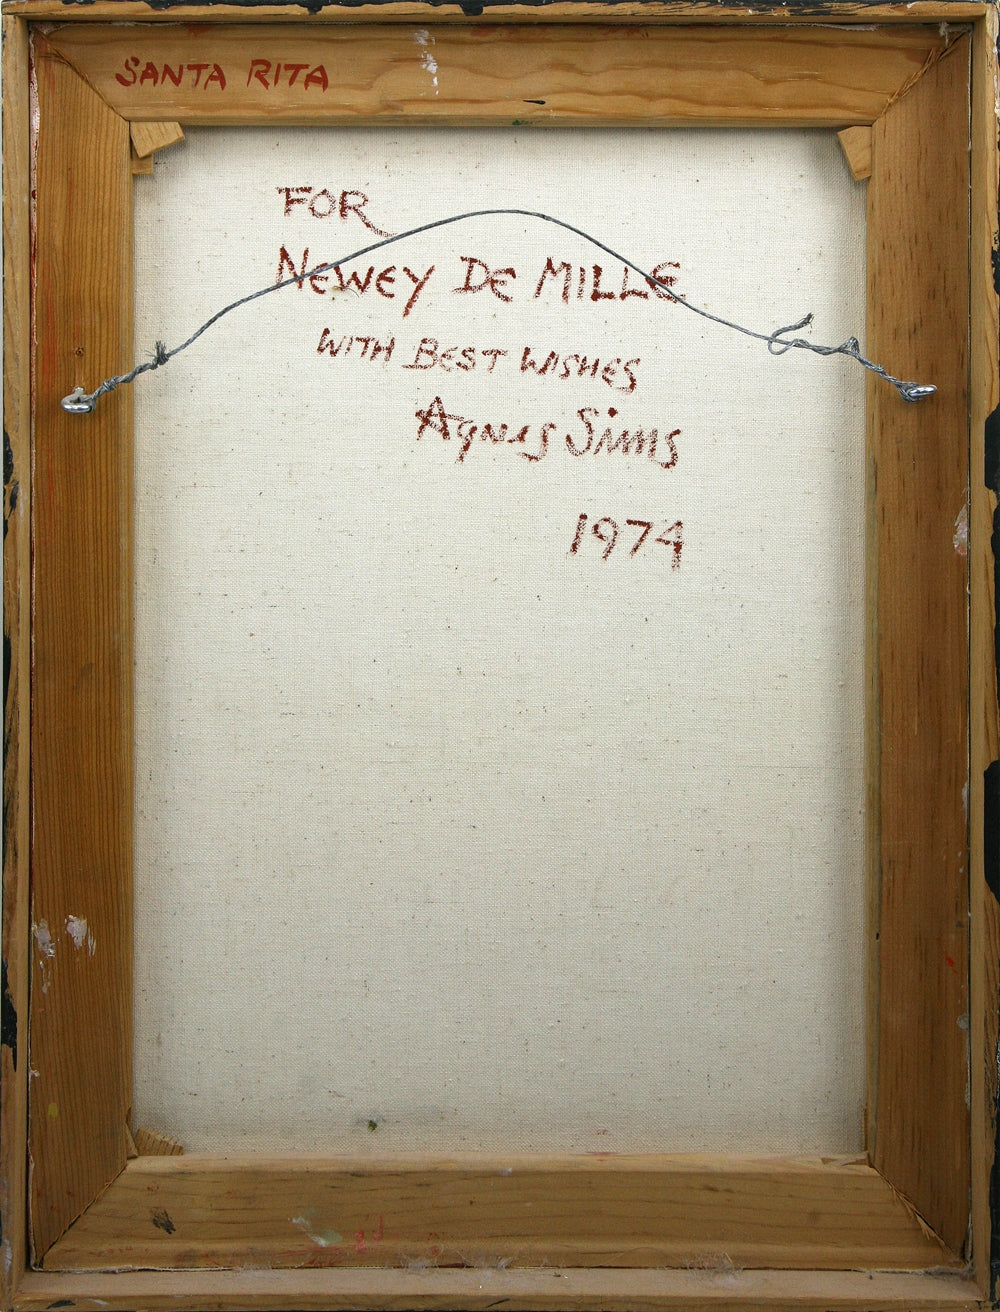 SANTA RITA
FOR
NEWEY DE MILLE
WITH BEST WISHES
Agnes Sims
1974